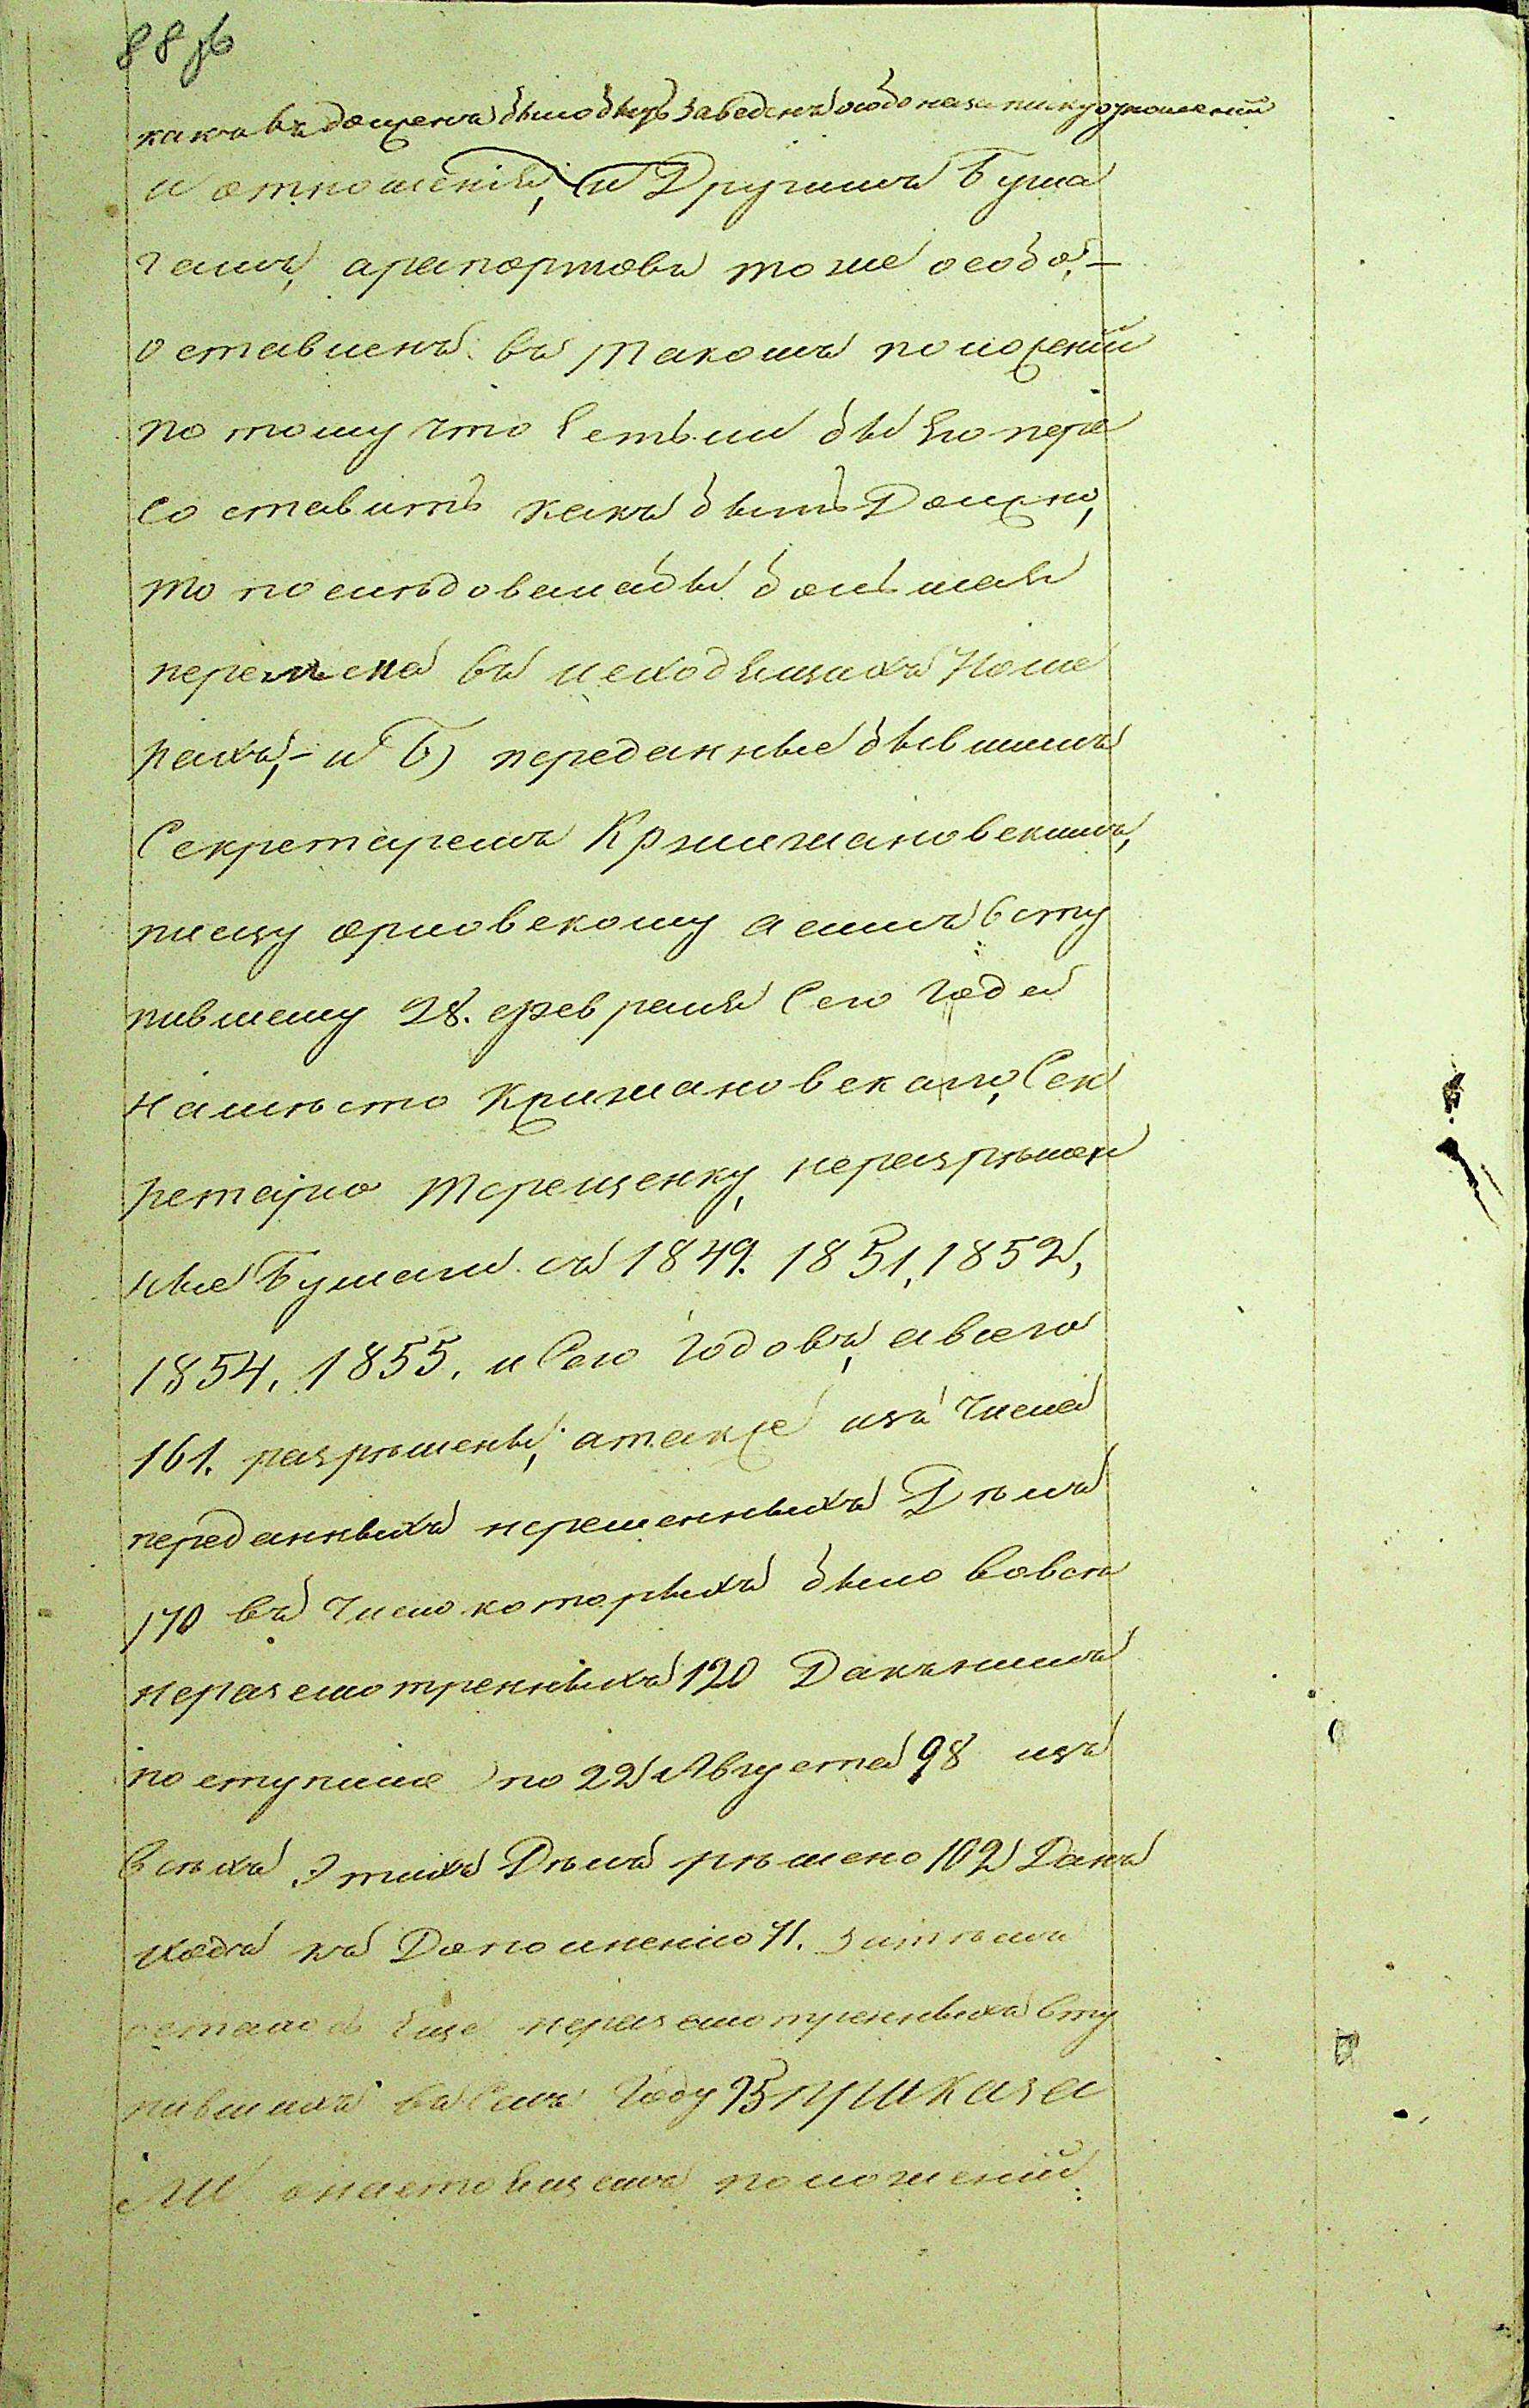 88 об
какъ въ долженъ было быть заведенъ особо на записку отношеній
и отношенія, и Другимъ Бума
гамъ, арапортовъ тоже особо, —
оставленъ въ такомъ положеніи
по тому что Естьли бы Его пере
составить какъ быть Должно,
то последовала бы большая
перемена въ исходящихъ Номе
рахъ, — и Б) переданные бывшимъ
Секретаремъ Кржижановскимъ,
писцу орловскому а симъ всту
пившему 28. февраля Сего года
намѣсто Крижановскаго, Сек
ретарю Терещенку, неразрѣшен
ные Бумаги съ 1849. 1851, 1852,
1854, 1855, и Сего годовъ, а всего
161. разрѣшены; а также изъ Числа
переданныхъ нерешенныхъ Дѣлъ
170 въ Число которыхъ было вовсе
неразсмотренныхъ 120 Да къ нимъ
поступило по 22 Августа 98 изъ
всѣхъ Этихъ Дѣлъ рѣшено 102 Данъ
ходъ къ Дополненію 71. затѣмъ
осталось Еще неразсмотренныхъ всту
пившихъ въ Семъ Году 25 приказа
ли о настоящемъ положеніи